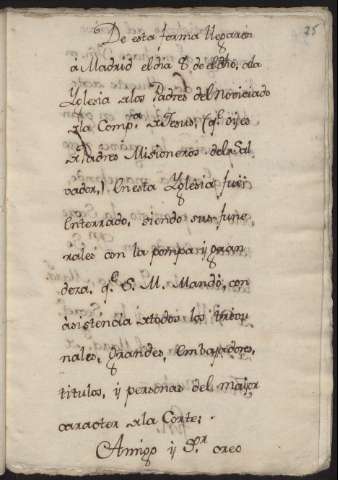 25
De esta forma llegaron
á Madrid el dia 8 de el dho, ala
Yglesia a los Padres del Noviciado
a la Comp.a a Jesus, (q.e oy es
a Padres Misioneros del Sal
vador,) En esta Yglesia fue
Enterrado, siendo sus fune
rales con la pompa y gran
deza, q.e S. M. Mandó, con
asistencia a todos los tribu
nales, Grandes, Embajadores,
titulos, y personas del mayor
caracter a la Corte.
Amigo y S.or creo